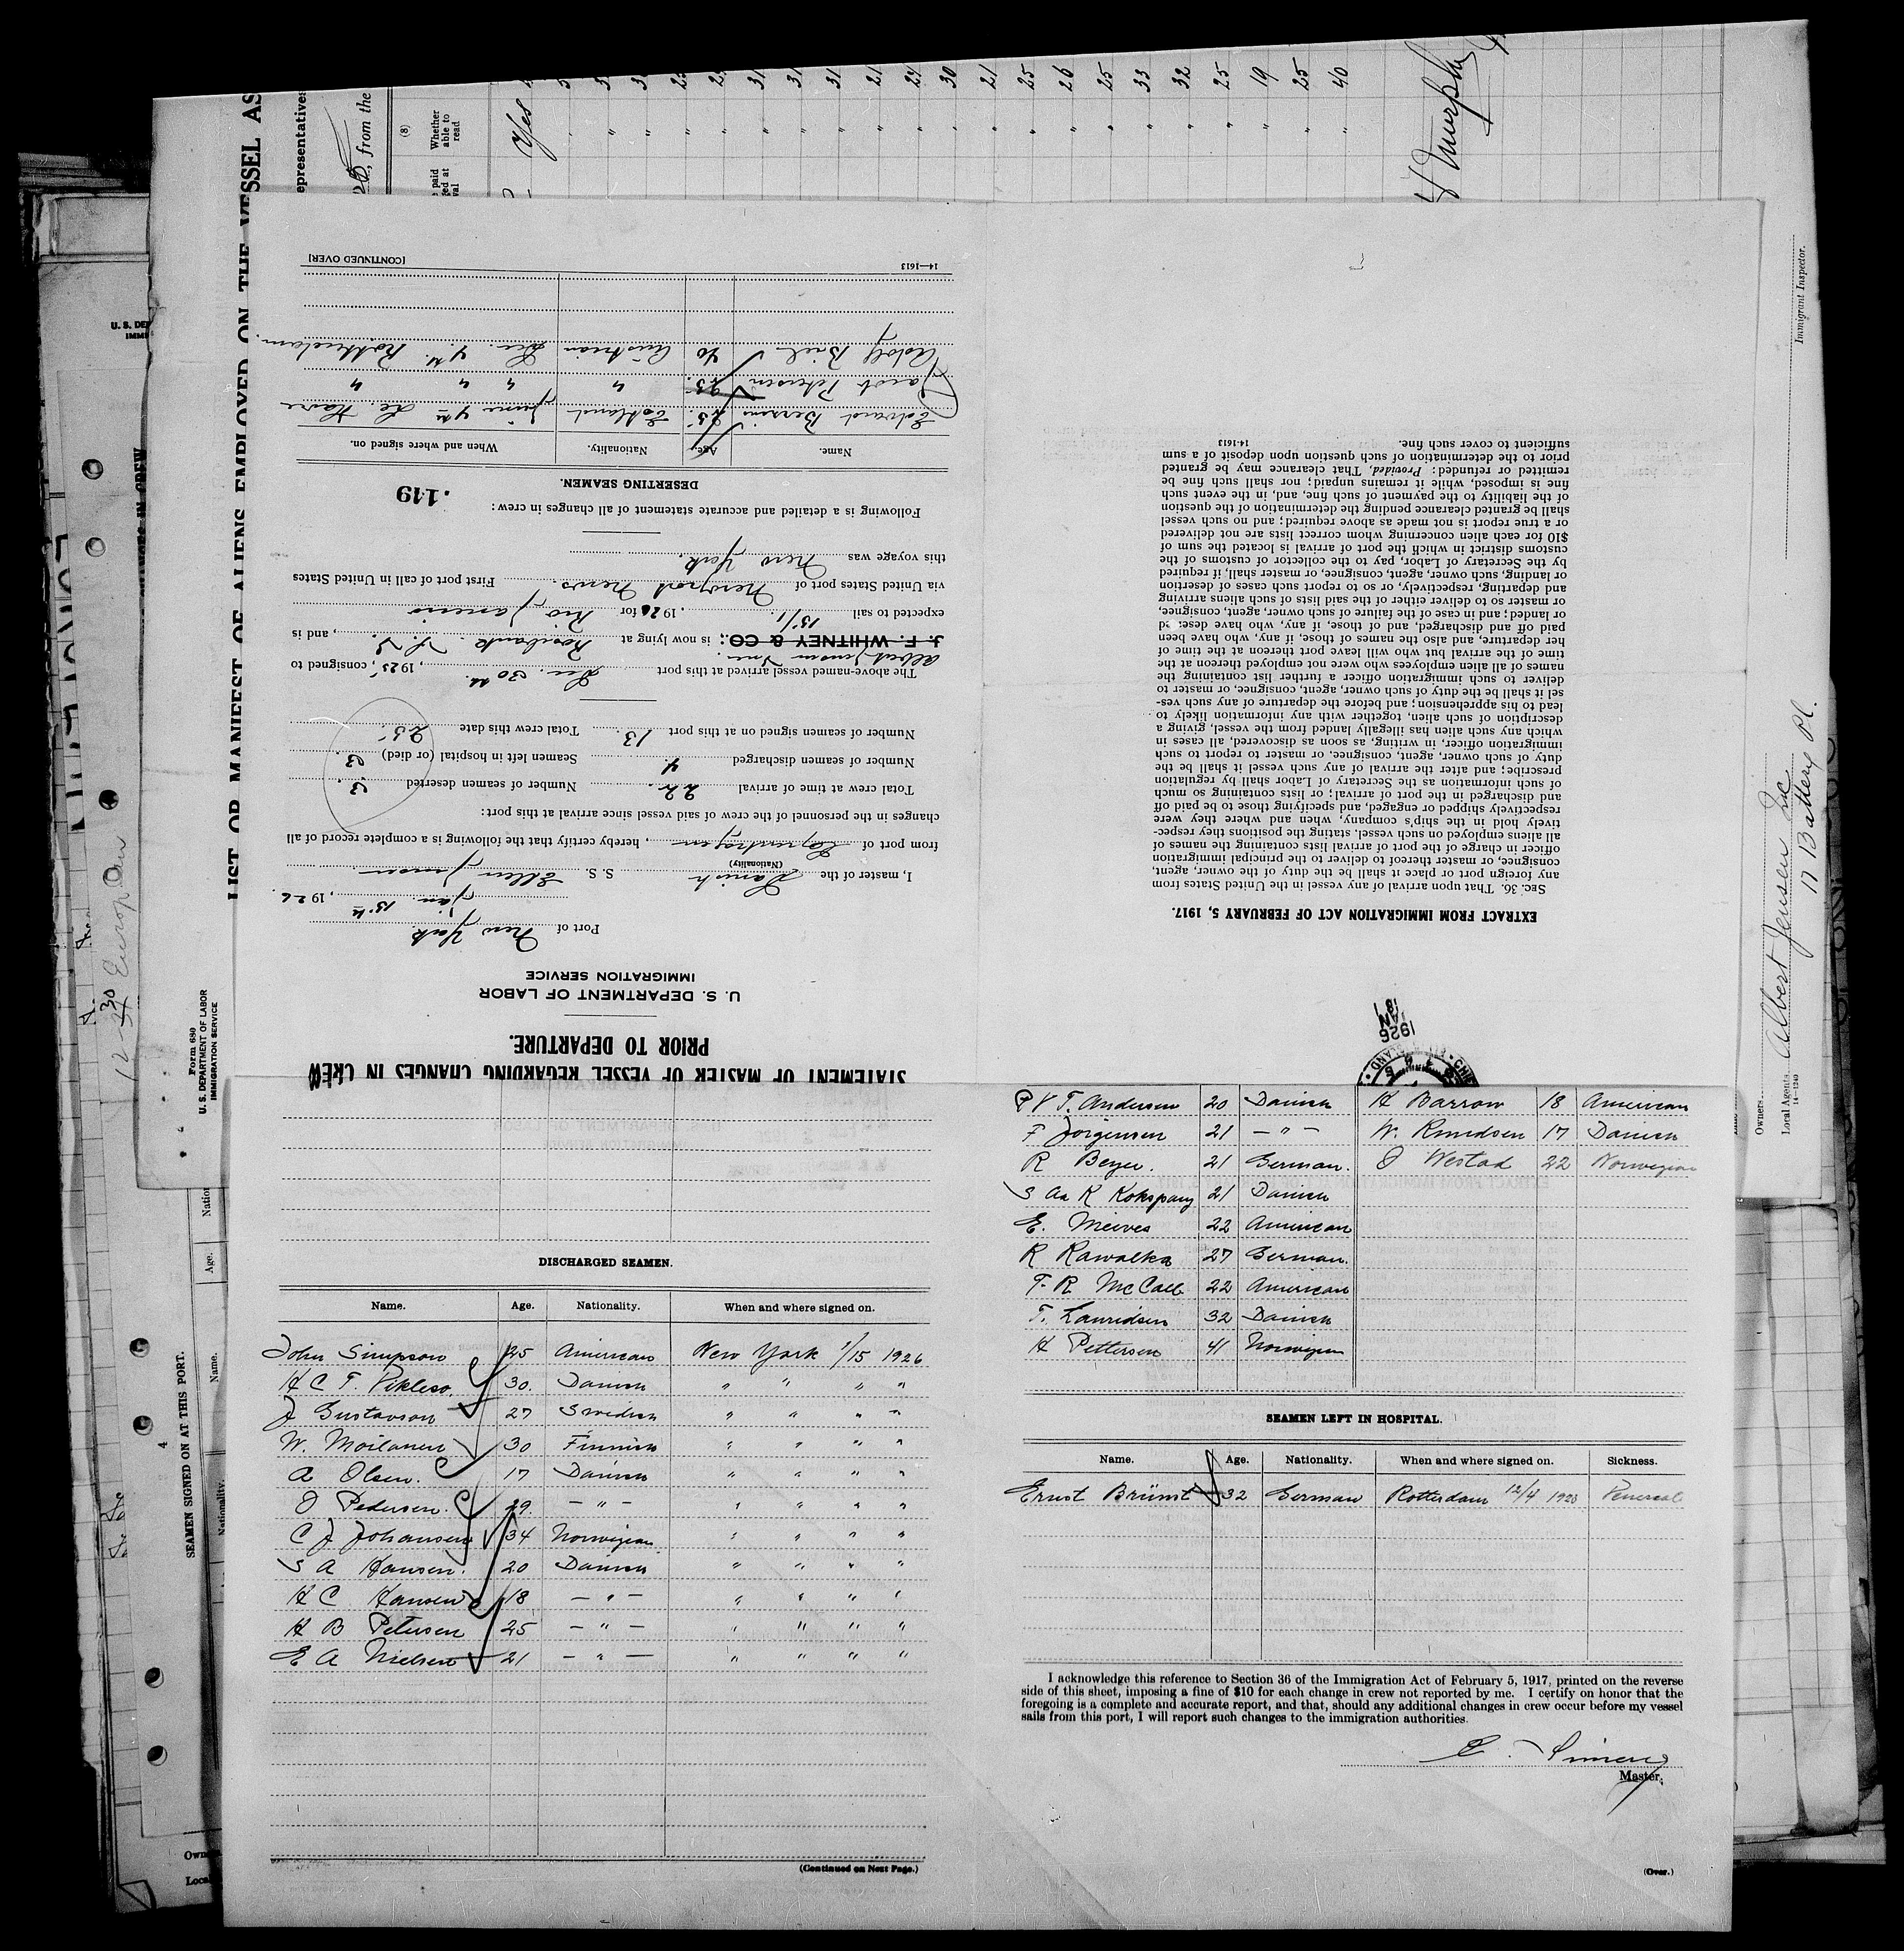 STATEMENT OF MASTER OF VESSEL REGARDING CHANGES IN CREW
PRIOR TO DEPARTURE.
U. S. DEPARTMENT OF LABOR
IMMIGRATION SERVICE
Port of New York
Jan. 15th, 1926
I, master of the Danish S. S. Ellen Jensen
(Nationality)
from port of Copenhagen, hereby certify that the following is a complete record of all
changes in the personnel of the crew of said vessel since arrival at this port:
Total crew at time of arrival 22. Number of seamen deserted 3.
Number of seamen discharged 4. Seamen left in hospital (or died)
Number of seamen signed on at this port 13. Total crew this date 25.
The above-named vessel arrived at this port Dec. 30th, 1925, consigned to
Albert Jensen Inc.
J. F. WHITNEY & CO.; is now lying at Rosebank, and is
expected to sail 15/1, 1926 for Rio Janeiro
via United States port of Newport News. First port of call in United States
this voyage was New York.
Following is a detailed and accurate statement of all changes in crew:
149
DESERTING SEAMEN.
Name. Age. Nationality. When and where signed on.
Edvard Bersin 25. Estland June 4th Le. Havre
Jacob Petersen " " " "
Adolf Biel 40 Austrian Dec. 4th. Rotterdam.
14—1613 [CONTINUED OVER]
EXTRACT FROM IMMIGRATION ACT OF FEBRUARY 5, 1917.
SEC. 36. That upon arrival of any vessel in the United States from
any foreign port or place it shall be the duty of the owner, agent,
consignee, or master thereof to deliver to the principal immigration
officer in charge of the port of arrival lists containing the names of
all aliens employed on such vessel, stating the positions they respec-
tively hold in the ship's company, when and where they were
respectively shipped or engaged, and specifying those to be paid off
and discharged in the port of arrival; or lists containing so much
of such information as the Secretary of Labor shall by regulation
prescribe; and after the arrival of any such vessel it shall be the
duty of such owner, agent, consignee, or master to report to such
immigration officer, in writing, as soon as discovered, all cases in
which any such alien has illegally landed from the vessel, giving a
description of such alien, together with any information likely to
lead to his apprehension; and before the departure of any such ves-
sel it shall be the duty of such owner, agent, consignee, or master to
deliver to such immigration officer a further list containing the
names of all alien employees who were not employed thereon at the
time of the arrival but who will leave port thereon at the time of
her departure, and also the names of those, if any, who have been
paid off and discharged, and of those, if any, who have deserted
or landed; and in case of the failure of such owner, agent, consignee,
or master so to deliver either of the said lists of such aliens arriving
and departing, respectively, or so to report such cases of desertion
or landing, such owner, agent, consignee, or master shall, if required
by the Secretary of Labor, pay to the collector of customs of the
customs district in which the port of arrival is located the sum of
$10 for each alien concerning whom correct lists are not delivered
or a true report is not made as above required; and no such vessel
shall be granted clearance pending the determination of the question
of the liability to the payment of such fine, and, in the event such
fine is imposed, while it remains unpaid; nor shall such fine be
remitted or refunded: Provided, That clearance may be granted
prior to the determination of such question upon deposit of a sum
sufficient to cover such fine.
14-1613
JAN
1926
DISCHARGED SEAMEN.
Name. Age. Nationality. When and where signed on.
John Simpson 25 American New York 1/15 1926
H C T. 30. Danish " " " "
J Gustavson 27 Swedish " " " "
W. Moilanen 30 Finnish " " " "
A Olsen. 17 Danish " " " "
O Pedersen. 29. — " — " " " "
C J Johansen 34 Norwegian " " " "
S A Hansen. 20 Danish " " " "
H C Hansen 18 — " — " " " "
H B Petersen 25 — " — " " " "
E A Nielsen 21 — " — " " " "
(Continued on Next Page.)
P V T. Andersen 20 Danish H Barrow 18 American
F Jorgensen 21 — " — W. Knudsen 17 Danish
R Beyer. 21 German. O Westad 22 Norwegian
S Aa K 21 Danish
E. Meives 22 American
R Kawalka 27 German.
T. R McCall 22 American
T. Lauridsen 32 Danish
H Pettersen 41 Norwegian
SEAMEN LEFT IN HOSPITAL.
Name. Age. Nationality. When and where signed on. Sickness.
Ernst Brünst 32 German Rotterdam 12/4 1925 Venereal
I acknowledge this reference to Section 36 of the Immigration Act of February 5, 1917, printed on the reverse
side of this sheet, imposing a fine of $10 for each change in crew not reported by me. I certify on honor that the
foregoing is a complete and accurate report, and that, should any additional changes in crew occur before my vessel
sails from this port, I will report such changes to the immigration authorities.
Master.
(Over.)
LIST OR MANIFEST OF ALIENS EMPLOYED ON THE VESSEL AS
Form 680
U. S. DEPARTMENT OF LABOR
IMMIGRATION SERVICE
epresentatives
, from the
(8)
Whether
able to
read
Yes
21
24
30
21
25
26
25
33
32
25
19
25
40
Murphy
Immigrant Inspector.
Owners
Local Agents Albert Jensen Inc
17 Battery Pl.
14—1240
SEAMEN SIGNED ON AT THIS PORT.
Name.
Age.
Nationality.